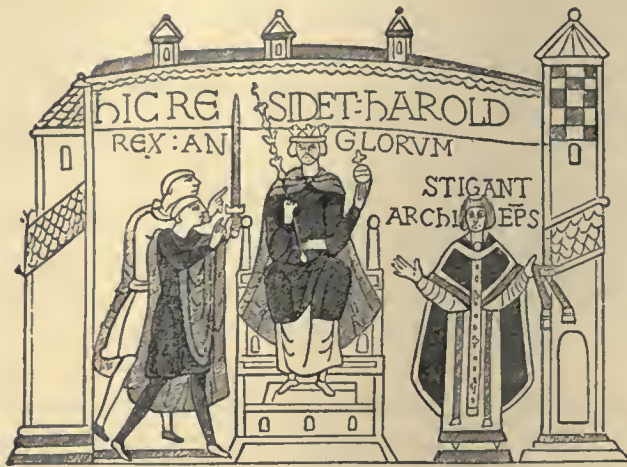 hIC RESIDET:hAROLD
REX:ANGLORVM
STIGANT
ARChIEP̅S